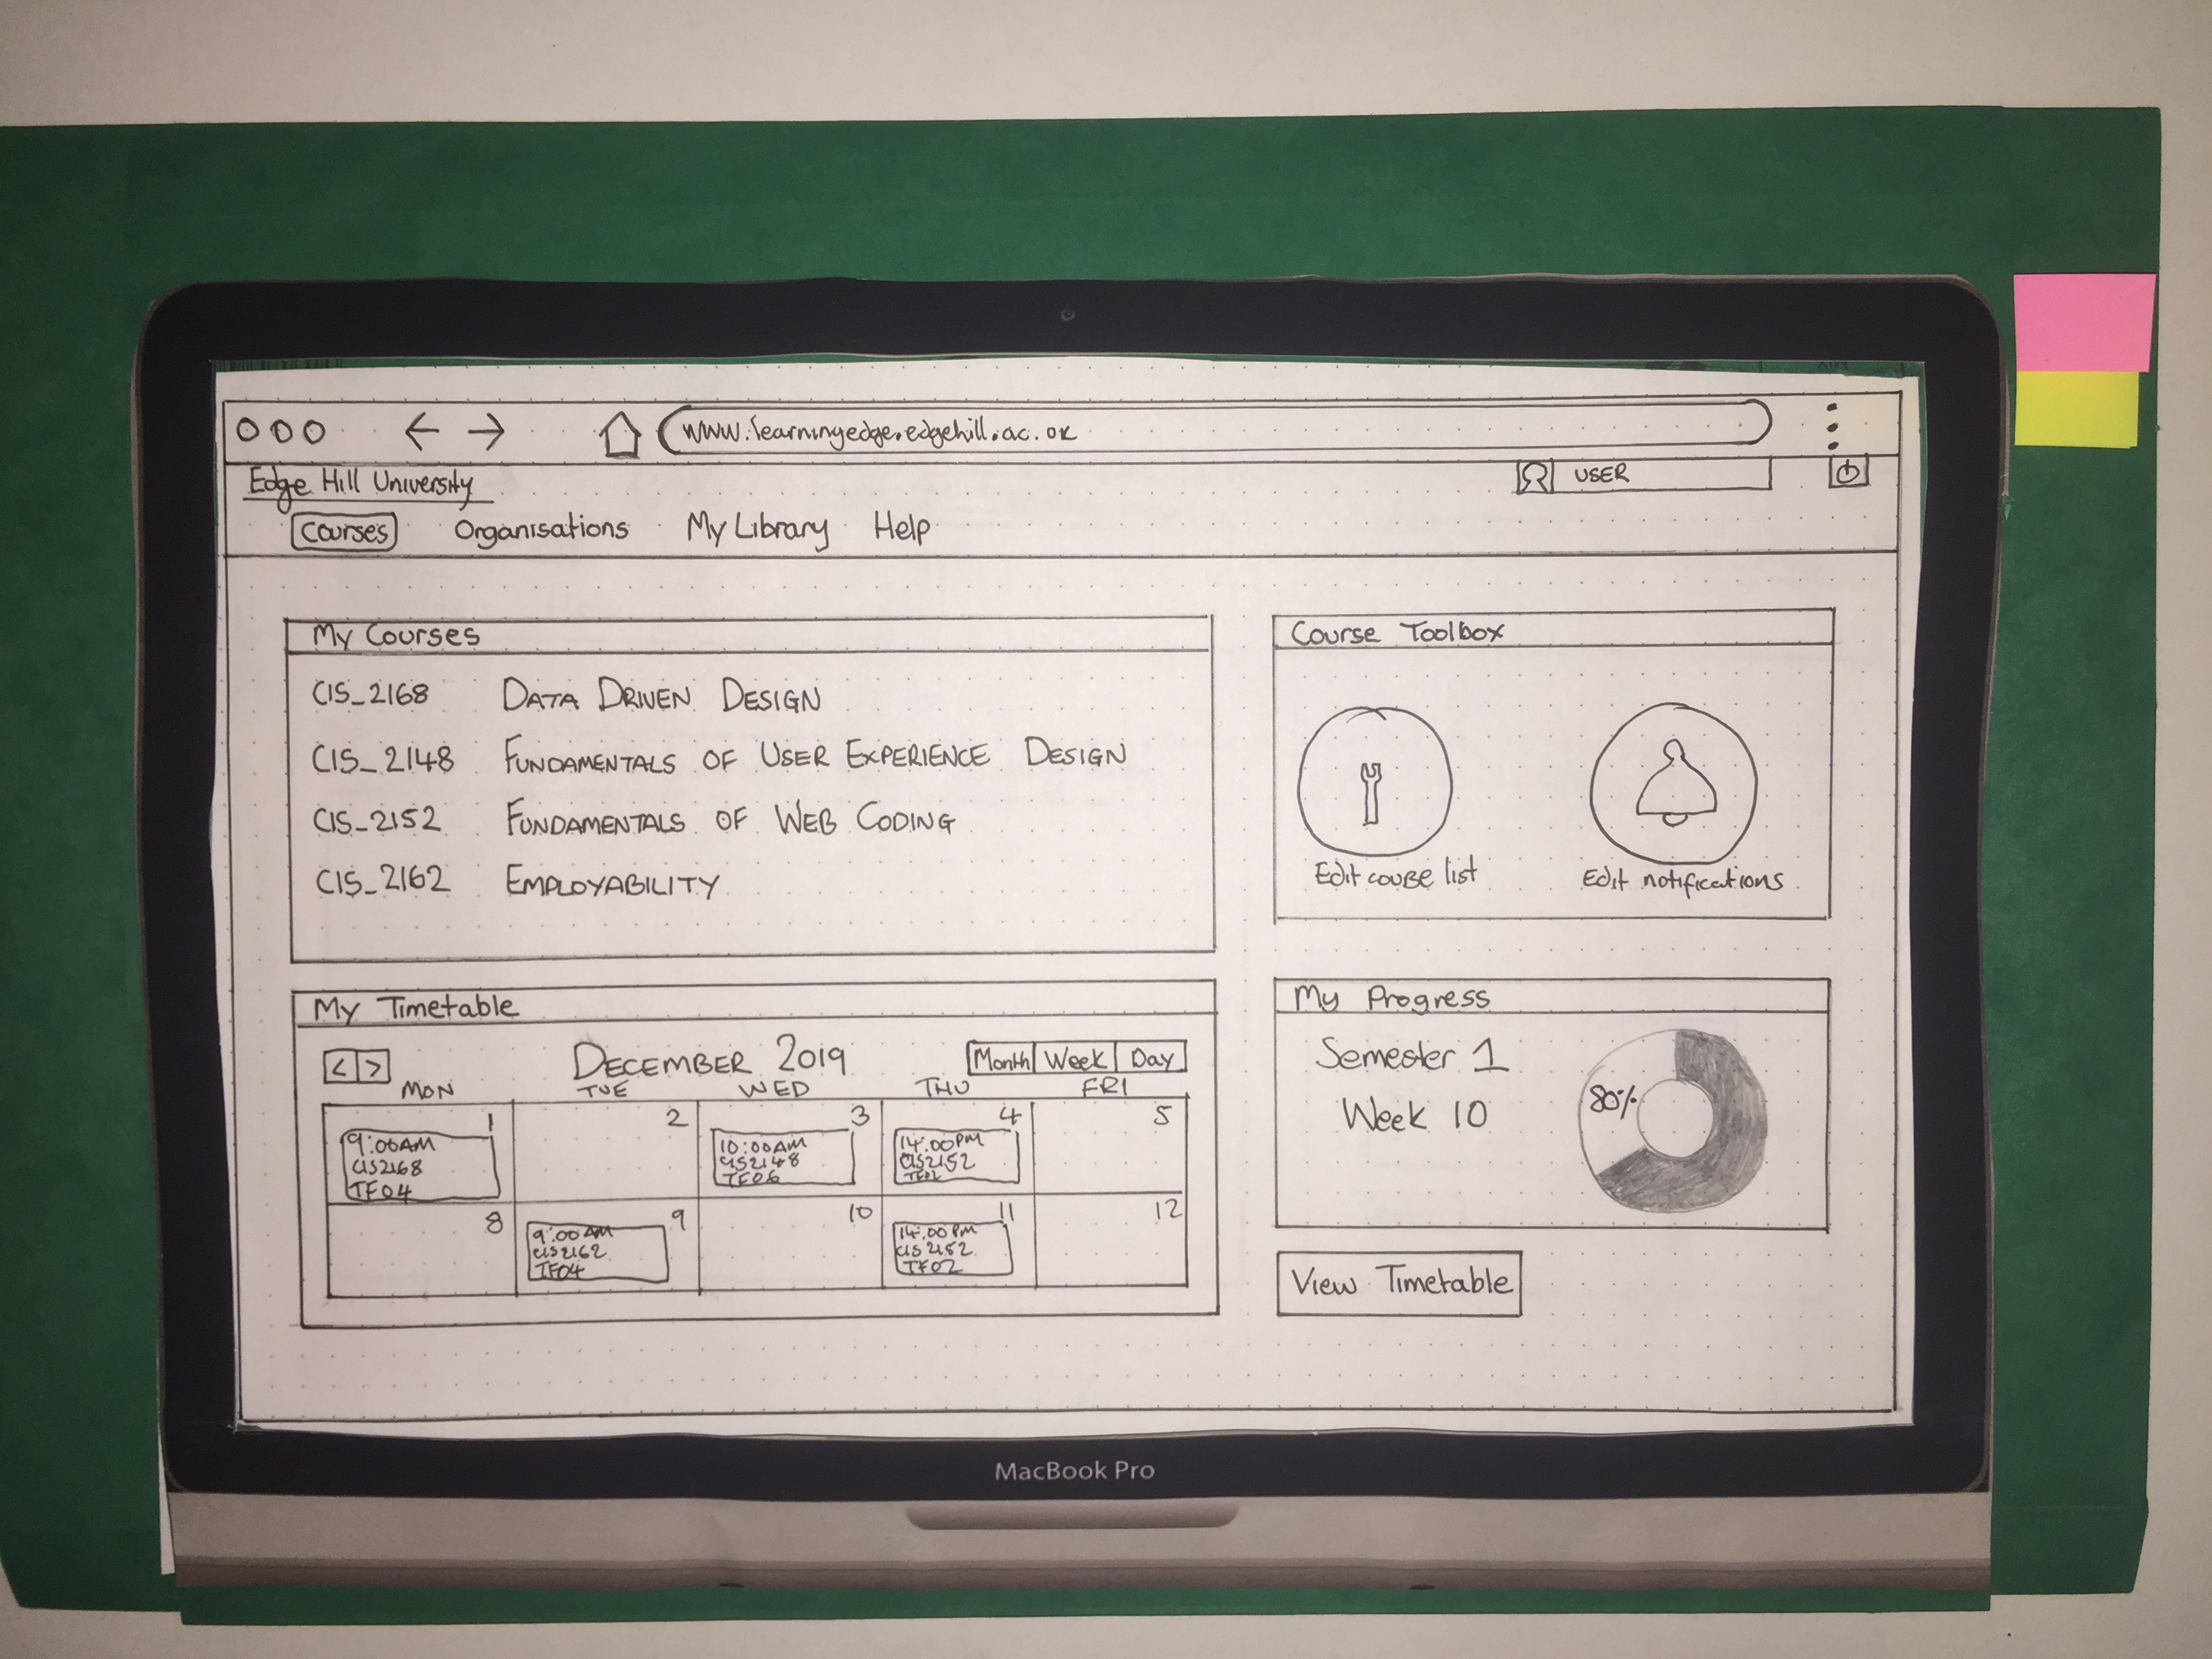 www.learningedge.edgehill.ac.uk
Edge Hill University
USER
Courses Organisations My Library Help
My Courses
CIS_2168 DATA DRIVEN DESIGN
CIS_2148 FUNDAMENTALS OF USER EXPERIENCE DESIGN
CIS_2152 FUNDAMENTALS OF WEB CODING
CIS_2162 EMPLOYABILITY
Course Toolbox
Edit course list
Edit notifications
My Timetable
< > DECEMBER 2019 Month Week Day
MON TUE WED THU FRI
1 2 3 4 5
9:00AM
CIS2168
TF04
10:00AM
CIS2148
TF06
14:00PM
CIS2152
8 9 10 11 12
9:00AM
CIS2162
TF04
14:00PM
CIS2152
TF02
My Progress
Semester 1
Week 10
80%
View Timetable
MacBook Pro